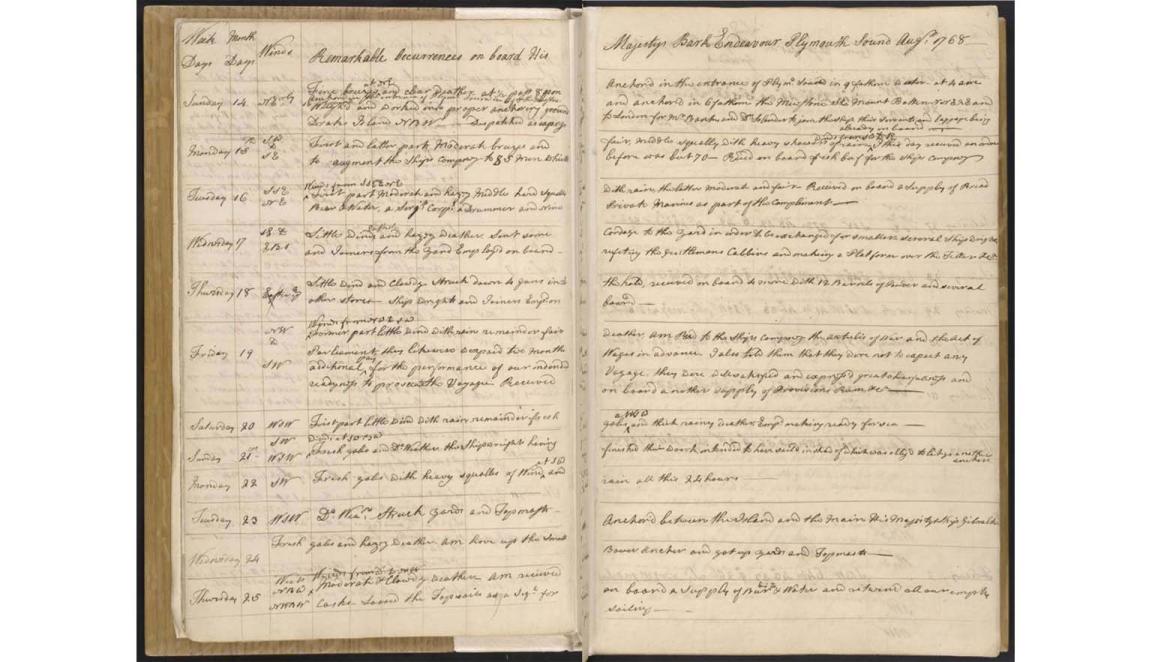 Week Month
Days Days Winds Remarkable Occurrences on board His
at NE
Sunday 14 NE Fine breeze and clear weather at 1/2 past 8 pm
Weighed and worked into proper anchoring ground
Drakes Island NBW — Dispatched an express
Monday 15 First and latter part Moderate breeze and
SE to augment the Ships company to 85 Men which
Winds from SSE to NE
Tuesday 16 SSE First part Moderate and hazey Middle hard Squalls
NE Beer & Water, a Sergt Corpl a Drummer and nine
Easterly
Wednesday 17 Little Wind and hazey Weather Sent some
and Joiners from the Yard Employ'd on board
Little Wind and Cloudy Struck down 4 guns in
Thursday 18 other stores — Ships Wright and Joiners Empd on
NW Former part little Wind with rain remainder fair
Friday 19 Parliament, they likewise receved two Months
SW additional pay for the performance of our intended
readyness to prosecute the Voyage Received
Saturday 20 WSW First part little Wind with rain remainder fresh
SW Winds at SW
Sunday 21 WSW Fresh gales and Do Weather the Shipwrights having
at SW
Monday 22 SW Fresh gales with heavy squalls of Wind and
Tuesday 23 WSW Do Wear. Struck Yards and Topmasts
Wednesday 24 Fresh gales and Hazy Weather. AM hove up the Small
Thursday 25 Moderate & Cloudy Weather AM received
NWBN Casks Loosed the Topsails as a Sigl for
Majestys Bark Endeavour Plymouth Sound Augt 1768
Anchor'd in the entrance of Plymo Sound in 9 fathom water at 4 am
and anchord in 6 fathom the Mewstone SE Mount Batten NNE½E and
to London for Mr Banks and Dr Solander to join the ship their Servants and baggage being
already on board —
fair, Middle squally with heavy showers of rain, this day received an order
before was but 70 — Recd on board fresh beef for the Ships Company
with rain the latter moderate and fair Received on board a supply of Bread
Private Marines as part of the Compliment —
Cordage to the Yard in order to be exchanged for smaller several Shipwrights
refiting the Gentlemens Cabbins and making a Platform over the Tiller &c
the hold, received on board 4 more with 12 Barrels of Powder and several
board —
Weather AM Read to the Ships Company the articles of War and the act of
Wages in advance I also told them that they were not to expect any
Voyage, they were well satisfied and express'd great cheerfullness and
on board another supply of Provisions Rum &c —
at WSW
gales and thick rainy weather Empd making ready for sea —
finished their work intended to have saild instead of which was oblig'd to let go another
anchor
rain all this 24 hours —
Anchord between the Island and the Main His Majestys Ship Gibralter
Bower Ancher and got up Yards and Topmasts —
on board a supply of Beer & Water and returnd all our empty
sailing —